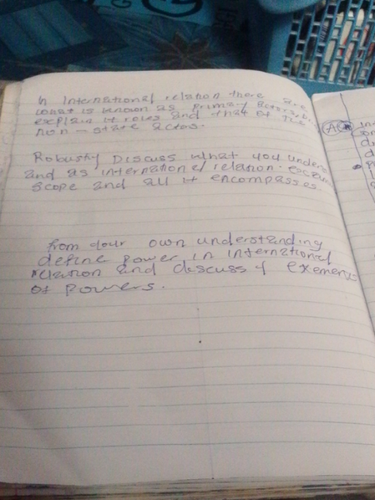 In International relation there are
what is known as primary actors
explain it roles and that of the
non-state actors.
Robustly Discuss what you unders
and as international relation. 
scope and all it encompasses.
from your own understanding
define power in international
relation and discuss 4
of powers.